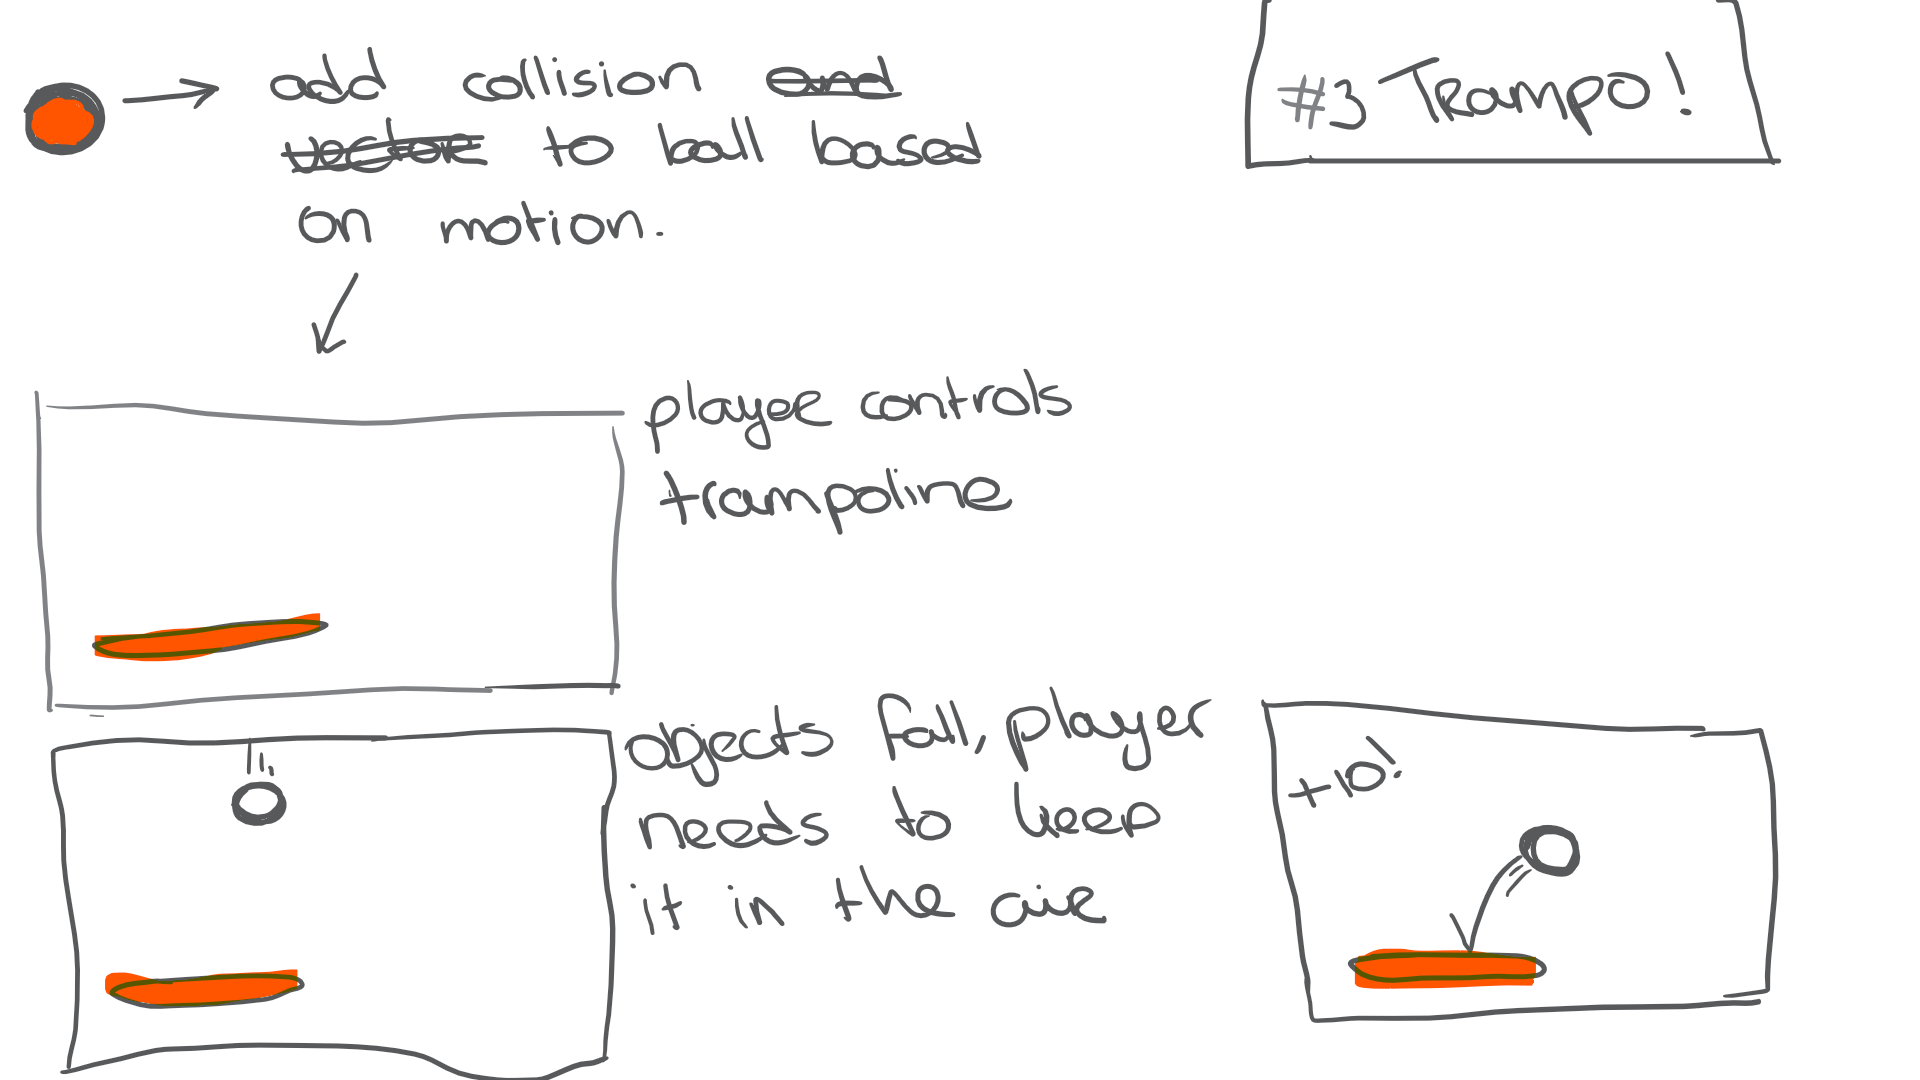 add collision and
vector to ball based
on motion.
#3 Trampo!
player controls
trampoline
objects fall, player
needs to keep
it in the air
+10!